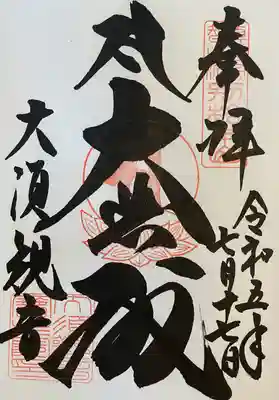 奉拝
令和五年
七月十七日
大悲殿
大須観音